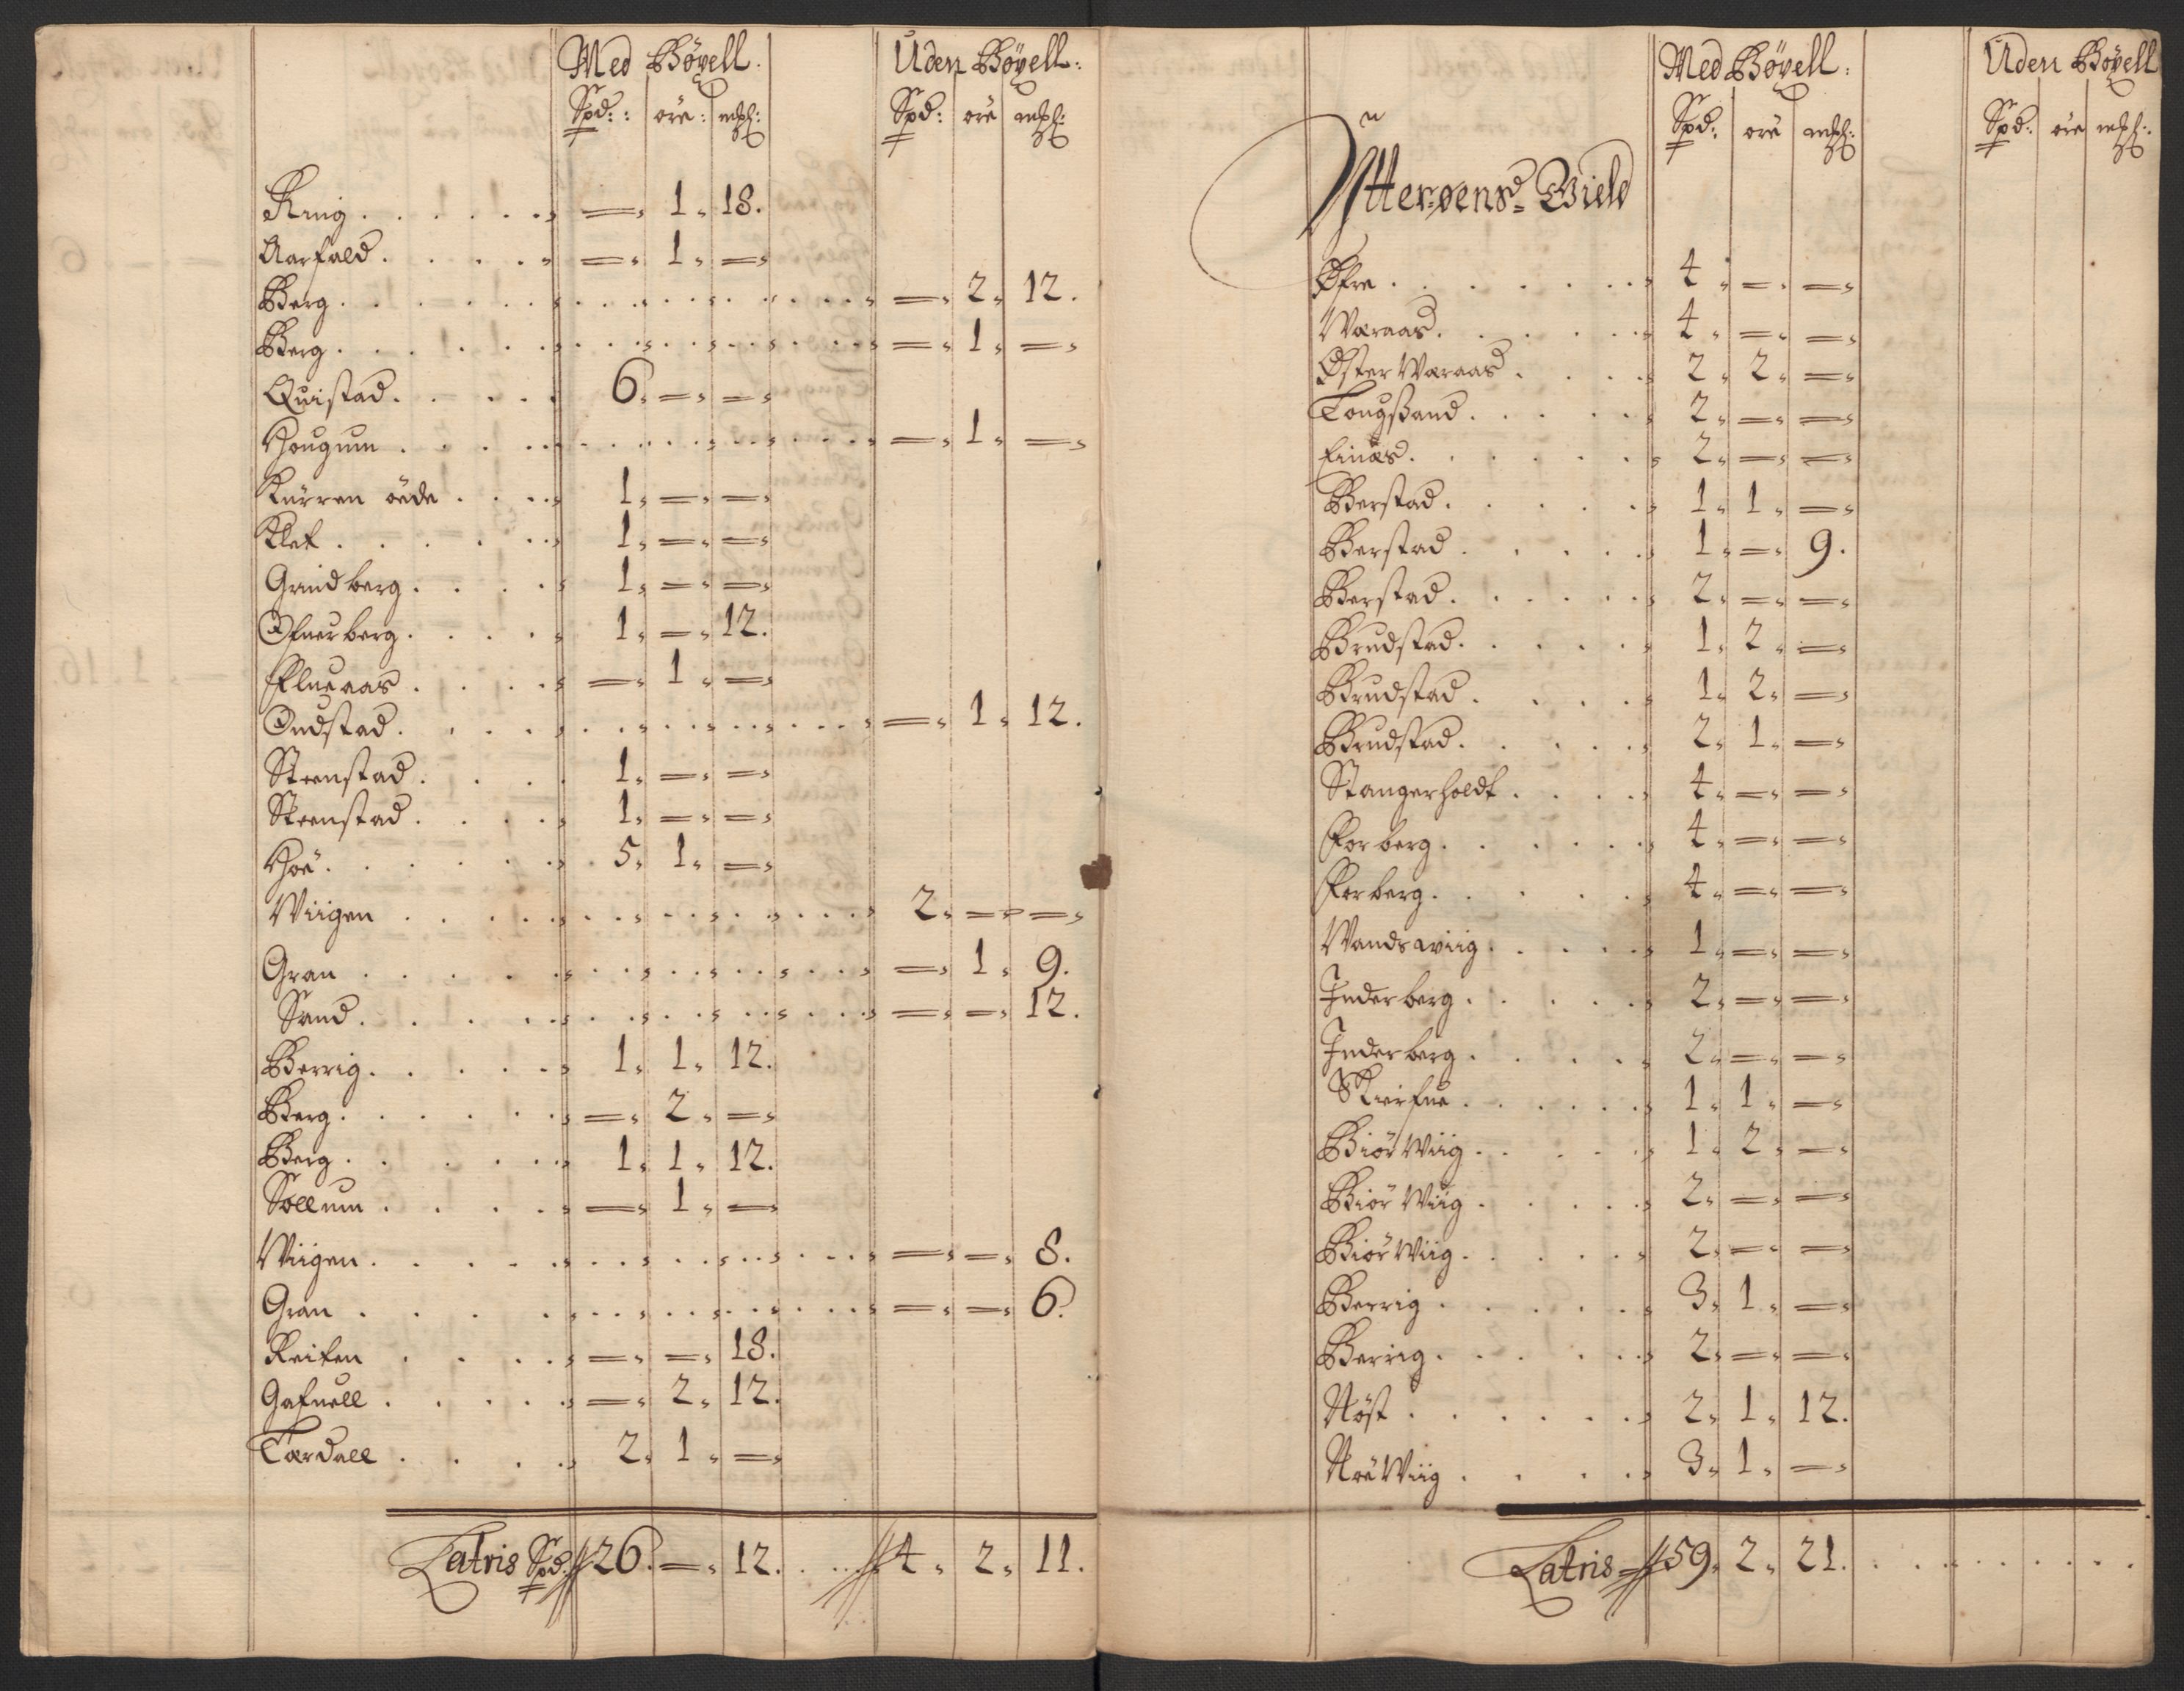 Med Böxell. Uden Böxell:
Spd: öre: mkl: Spd: öre mkl:
Ring . . . . . = 1. 18.
Aarfald . . . . = 1. =
Berg . . . . . = 2. 12.
Berg . . . . . = 1. =
Quistad . . . . 6. = =
Hougum . . . . = 1. =
Kurren öede . . . 1. = =
Klef . . . . . 1. = =
Grindberg . . . . 1. = =
Ofuerberg . . . . 1. = 12.
Flueaas . . . . = 1. =
Ondstad . . . . = 1. 12.
Steenstad . . . . 1. = =
Steenstad . . . . 1. = =
Hoë . . . . . 5. 1. =
Wiigen . . . . 2. = =
Gran . . . . . = 1. 9.
Sand . . . . . = = 12.
Berrig . . . . . 1. 1. 12.
Berg . . . . . = 2. =
Berg . . . . . 1. 1. 12.
Sollum . . . . = 1. =
Wiigen . . . . = = 8.
Gran . . . . . = = 6.
Reiten . . . . = = 18.
Gafuell . . . . = 2. 12.
Tærdall . . . . 2. 1. =
Latris Spd: 26. = 12. . . . 4. 2. 11.
Med Böxell: Uden Böxell
Spd: öre mkl: Spd: öre mkl:
Ytterøens Gield
Øfre . . . . . 4. = =
Waraas . . . . 4. = =
Øster Waraas . . . 2. 2. =
Tougßand . . . . 2. = =
Einæs . . . . . 2. = =
Berstad . . . . 1. 1. =
Berstad . . . . 1. = 9.
Berstad . . . . 2. = =
Brudstad . . . . 1. 2. =
Brudstad . . . . 1. 2. =
Brudstad . . . . 2. 1. =
Stangerholdt . . . 4. = =
Forberg . . . . 4. = =
Forberg . . . . 4. = =
Wandswiig . . . . 1. = =
Inderberg . . . . 2. = =
Inderberg . . . . 2. = =
Skierfue . . . . 1. 1. =
Biör Wiig . . . . 1. 2. =
Biör Wiig . . . . 2. = =
Biör Wiig . . . . 2. = =
Berrig . . . . . 3. 1. =
Berrig . . . . . 2. = =
Nöst . . . . . 2. 1. 12.
Noë Wiig . . . . 3. 1. =
Latris 59. 2. 21. . . . .